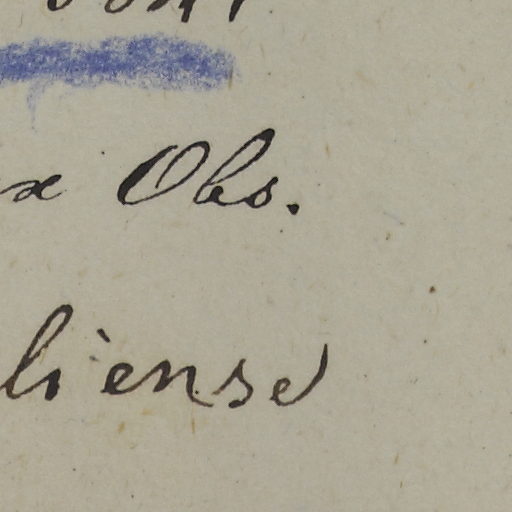 x Obs.
liense